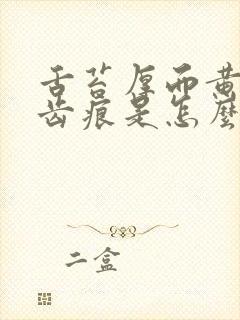 舌苔厚而黄
齿痕是怎麼
二盒